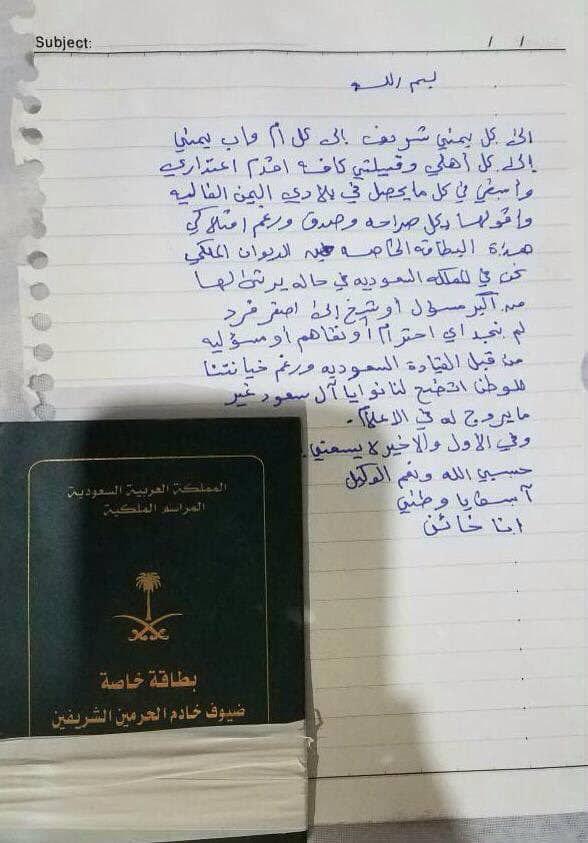 Subject:
/ /
بسم الله
إلى كل يمني شريف إلى كل أم واب يمني
إلى كل أهلي وقبيلتي كافه اقدم اعتذاري
وأسفي في كل ما يحصل في بلادي اليمن الغاليه
واقولها بكل صراحه وصدق ورغم امتلاكي
هذة البطاقه الخاصه الديوان الملكي
نحن في المملكه السعوديه في حاله يرثى لها
من أكبر مسؤل أو شيخ إلى اصغر فرد
لم نجد اي احترام أو تفاهم أو مسؤليه
من قبل القيادة السعوديه ورغم خيانتنا
للوطن اتضح لنا نوايا آل سعود غير
ما يروج له في الاعلام.
وفي الأول والاخير لا يسعني.
حسبي الله ونعم الوكيل
آسف يا وطني
انا خائن
المملكة العربية السعودية
المراسم الملكية
بطاقة خاصة
ضيوف خادم الحرمين الشريفين